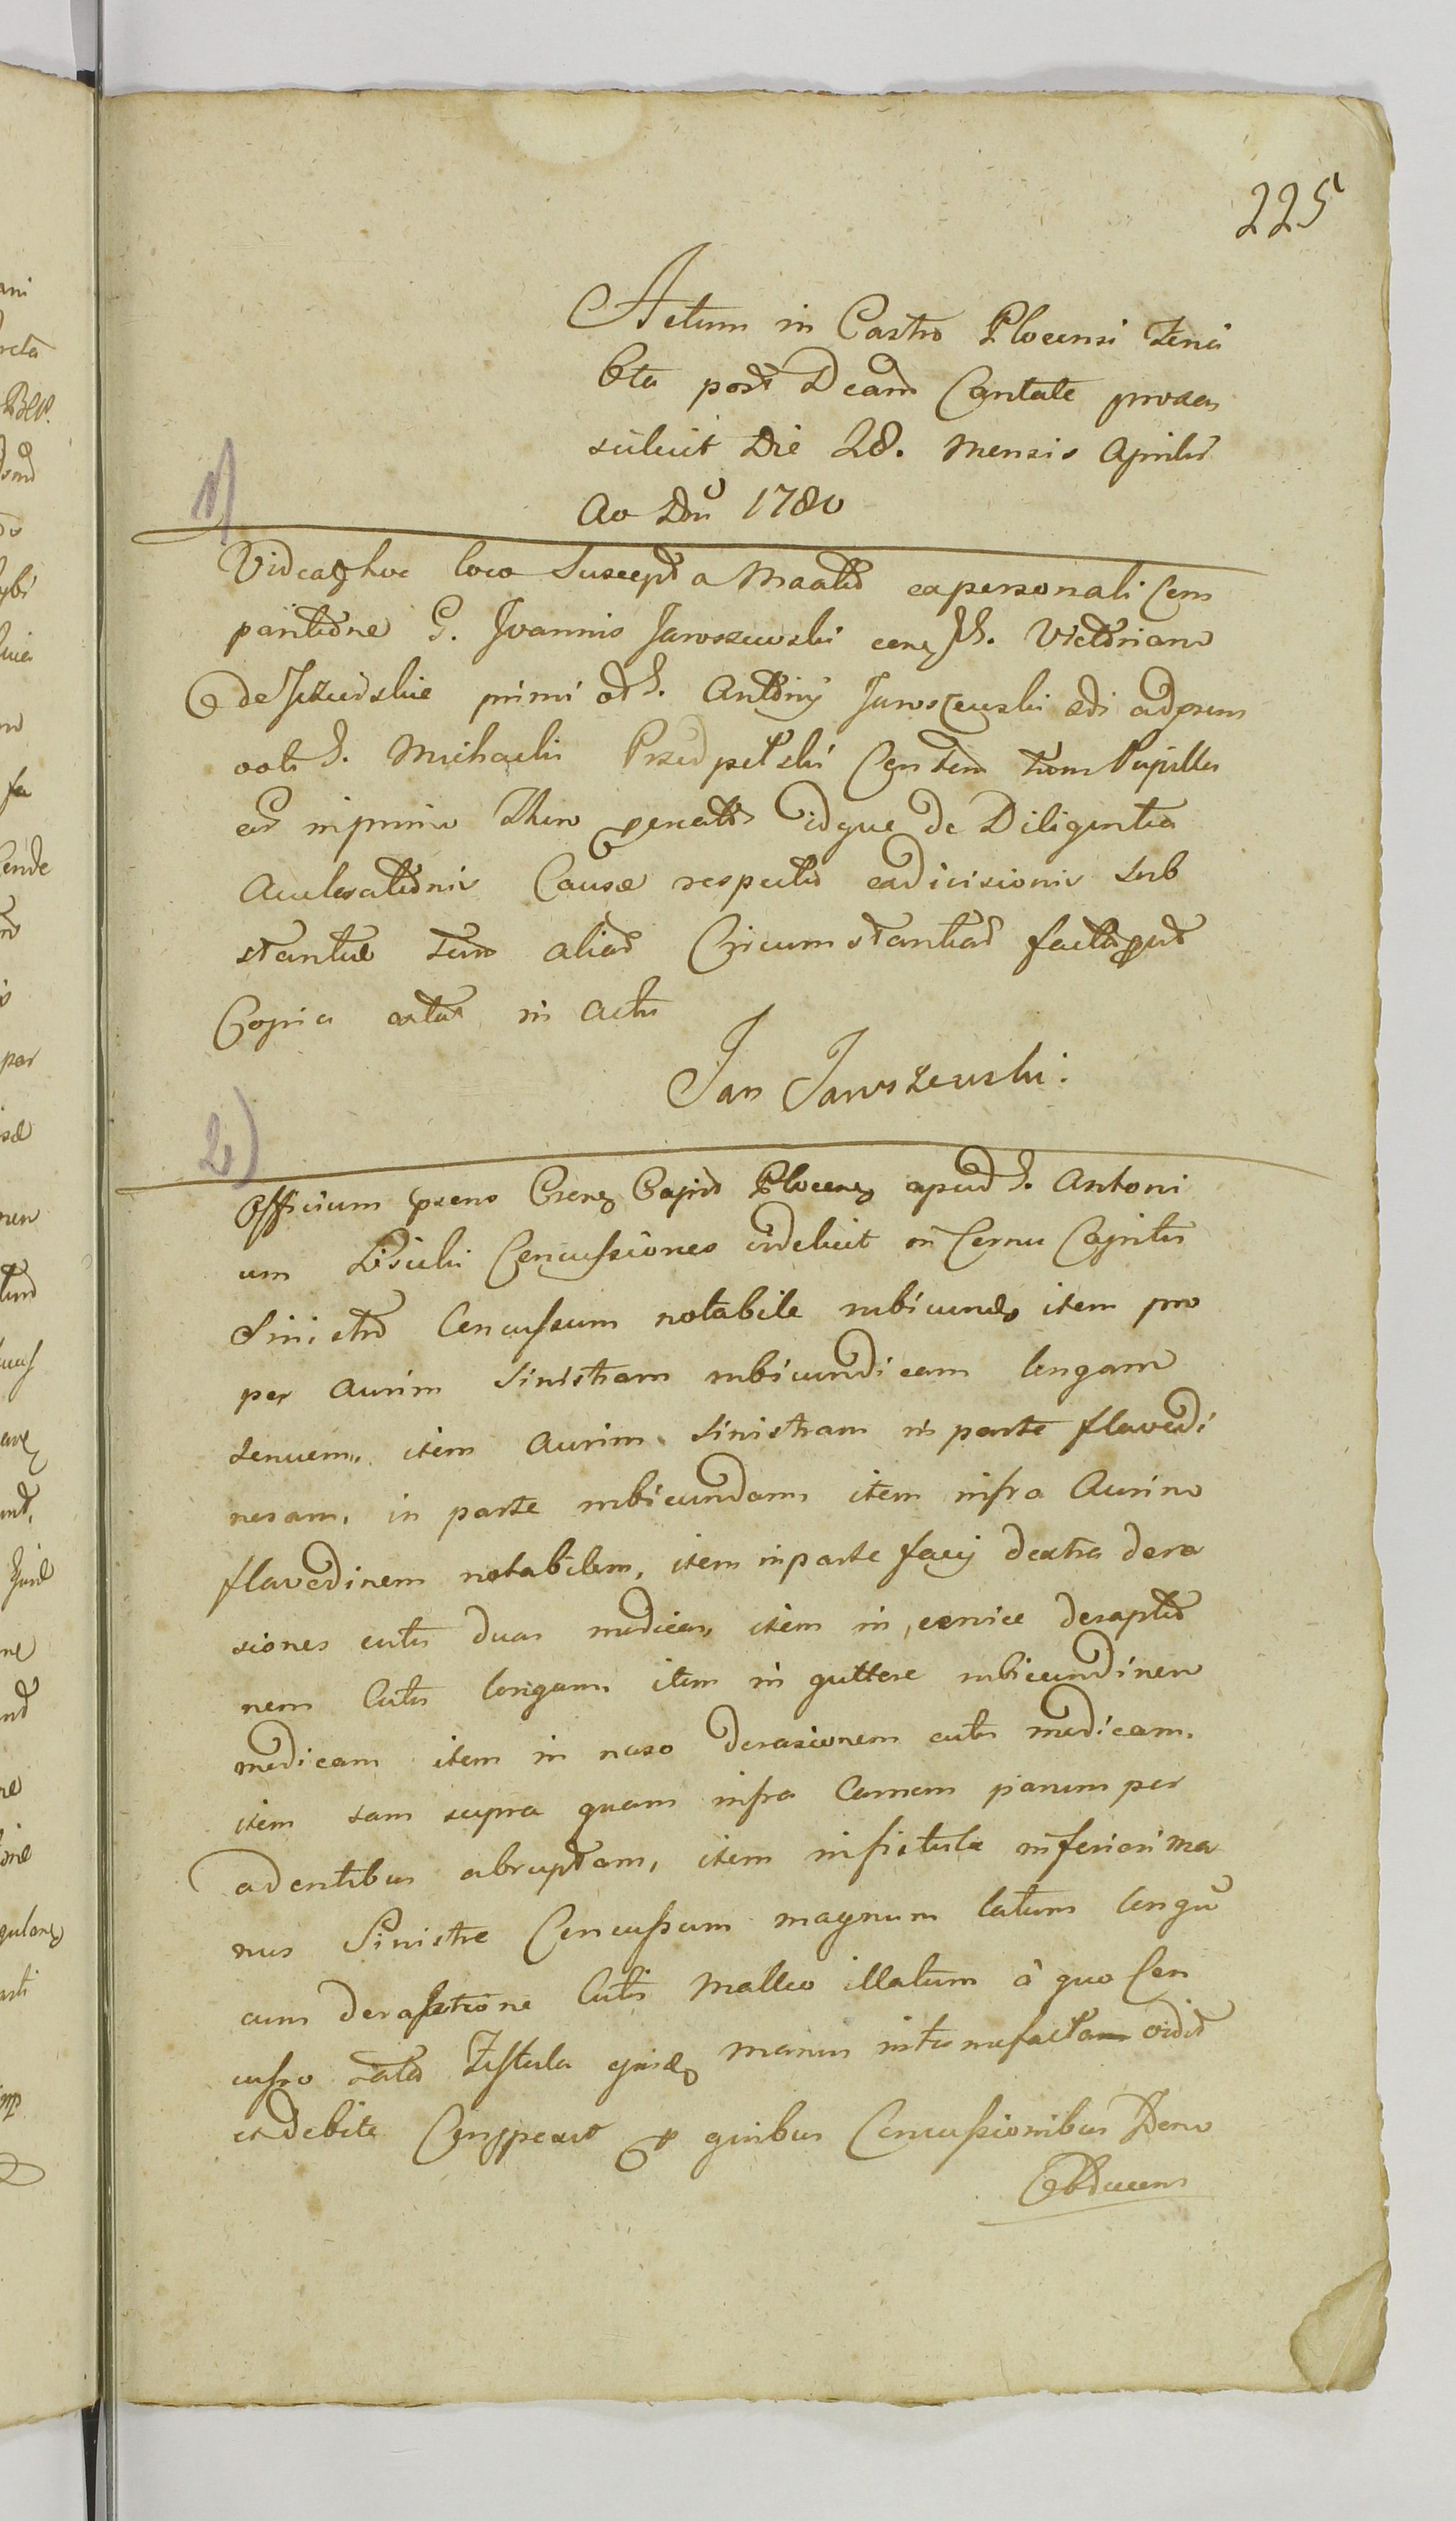 225
Actum in Castro Plocensi Feria
6ta post Dcam Cantate proxa
silicit Die 28. Mensis Aprilis
Ao Dni 1780
1)
Videaz hoc loco Suscepta Maatio ex personali Com
paritione G. Joannis Jaroszewski
primi et G. Antonij Jaroszewski
G. Michaelis Przedpelski
in primo idque de Diligentia
Causæ respectu condicisionis Sub
stantiæ alias Circumstantias facta prout
Copia extat in Actis
Jan Jaroszewski.
2)
Officium præns Crense Capto Plocense apud G. Antoni
um Lisicki Concussiones videlicit in Cornu Capitis
Sinistro Concussum notabile rubicund item pro
pe Aurim Sinistram rubicundicam longam
tenuem, item Aurim Sinistram in parte flavedi
nosam, in parte rubicundam item infra Aurim
flavedinem notabilem, item in parte facij dextra dera
siones cutis duas modicas, item in cervice deraptio
nem Cutis longam, item in guttere rubicundinem
modicam item in naso derasionem cutis modicam,
item tam supra quam infra Carnem parum per
a dentibus abruptam, item in fistula inferiori ma
nus Sinistræ Concussum magnum latum longū
cum derasstione Cutis Malleo illatum à quo Con
cusso tota Fistula ejusd manus intumefacta vidit
et debite Conspexit p quibus Concussionibus Deno